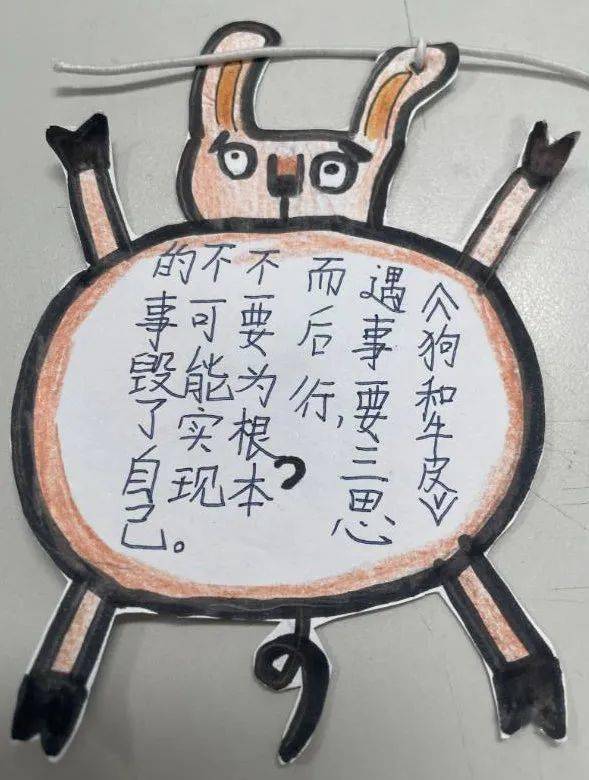 《狗和牛皮》
遇事要三思
而后行,
不要为根本
不可能实现
的事毁了自己。